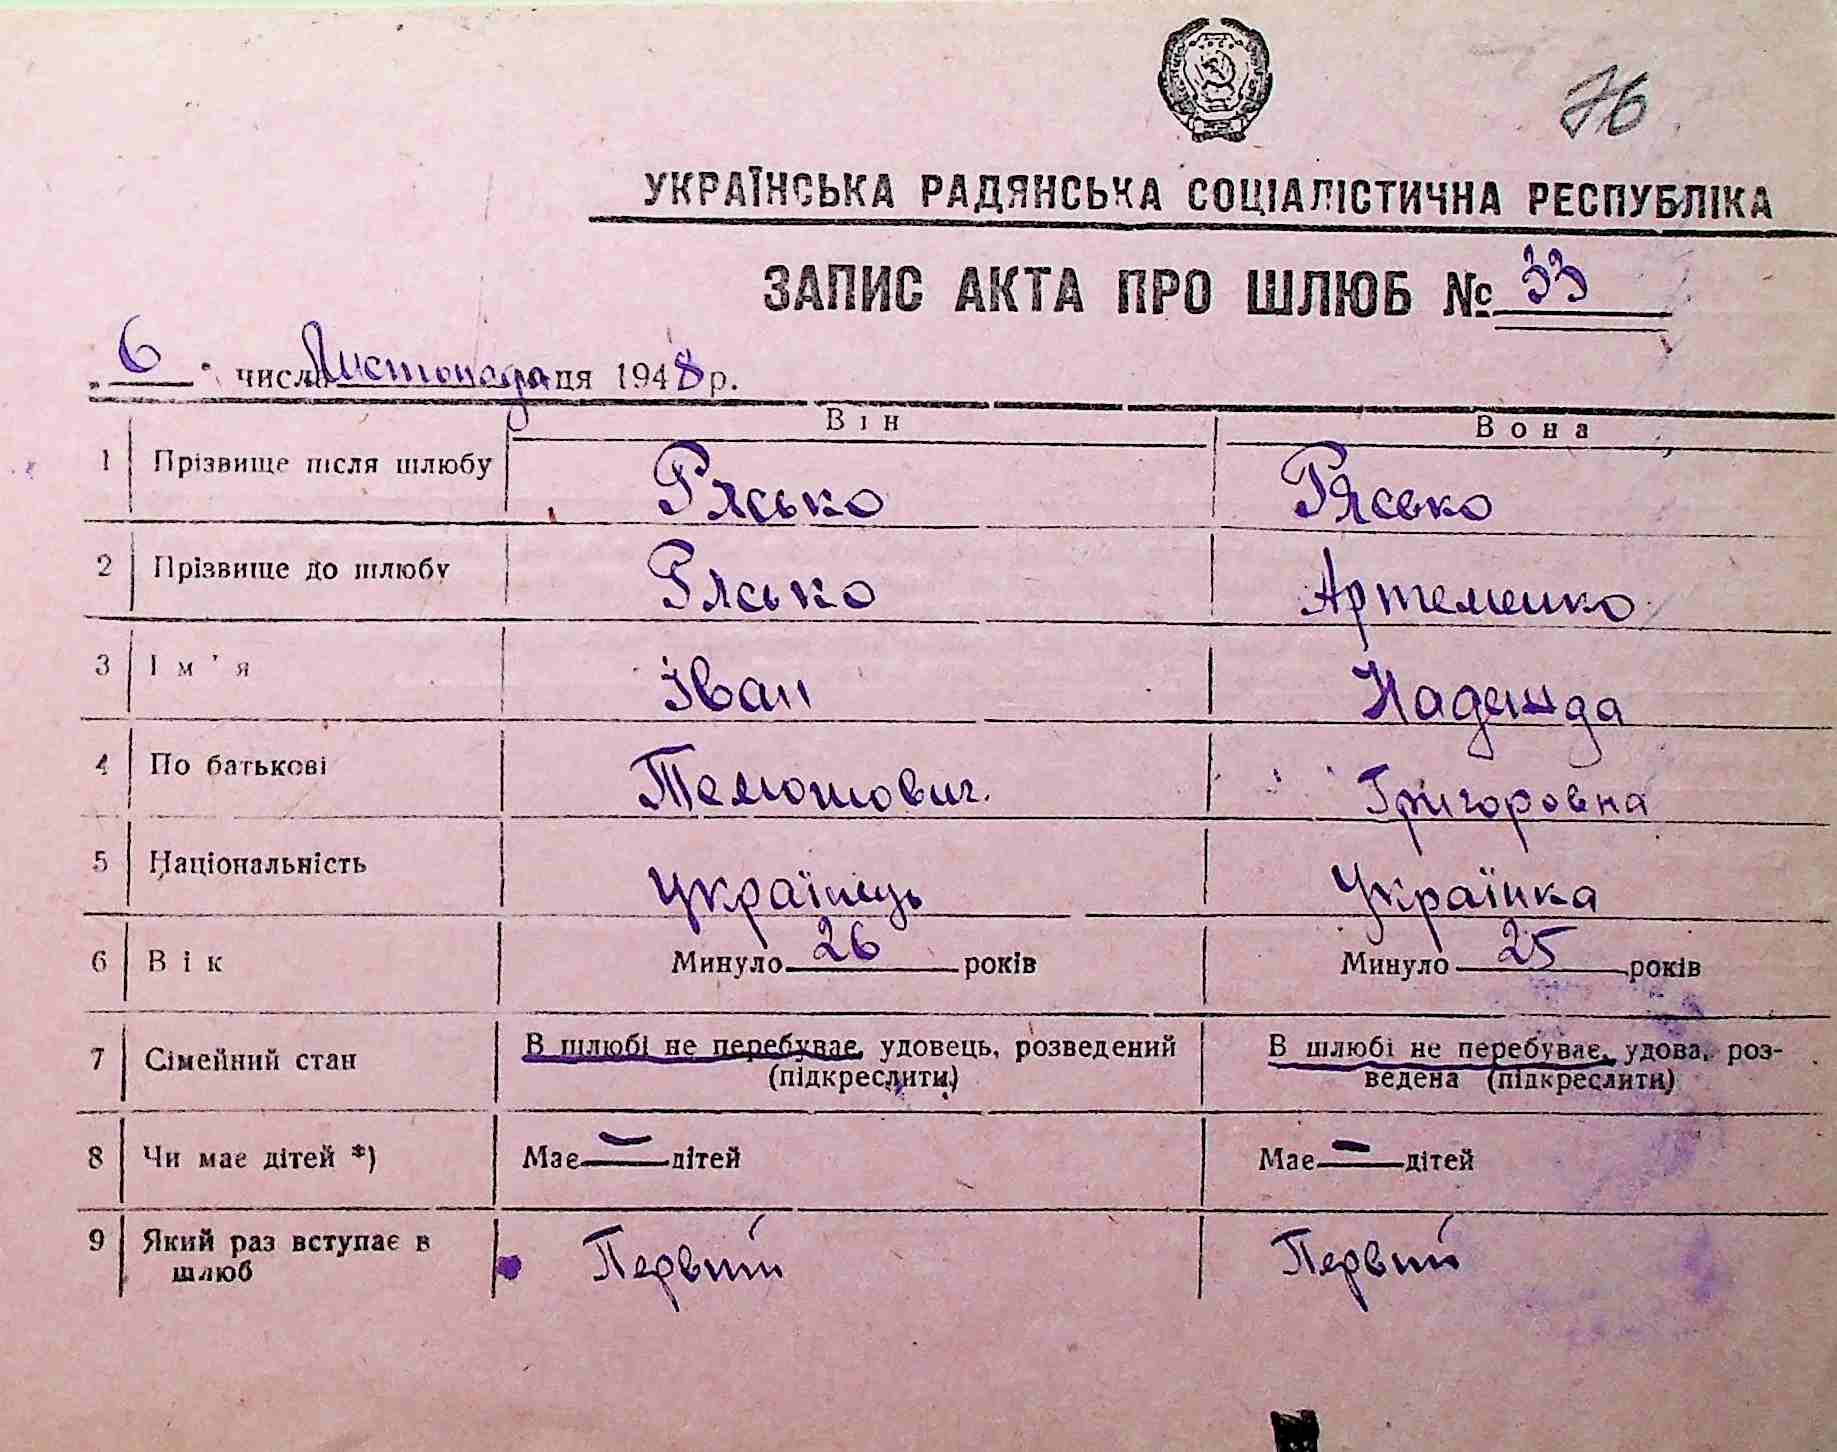 76
УКРАЇНСЬКА РАДЯНСЬКА СОЦІАЛІСТИЧНА РЕСПУБЛІКА
ЗАПИС АКТА ПРО ШЛЮБ № 33
"6" числа Листопада ця 1948 р.
Він Вона
1 Прізвище після шлюбу Рясько Рясько
2 Прізвище до шлюбу Рясько Артеменко
3 Ім'я Іван Надежда
4 По батькові Григоровна
5 Національність Українець Українка
6 Вік Минуло 26 років Минуло 25 років
7 Сімейний стан В шлюбі не перебуває, удовець, розведений В шлюбі не перебуває, удова, роз-
(підкреслити) ведена (підкреслити)
8 Чи має дітей *) Має — дітей Має — дітей
9 Який раз вступає в Первий Первий
шлюб